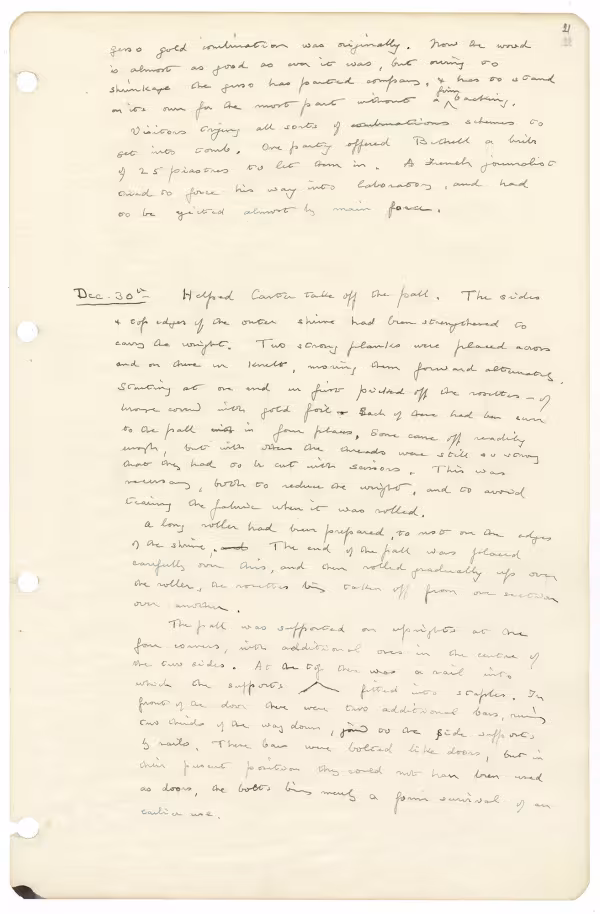 21
gesso gold combination was originally. Now the wood
is almost as good as ever it was, but owing to
shrinkage the gesso has parted company, & has to stand
on its own for the most part without a firm backing.
Visitors trying all sorts of combinations schemes to
get into tomb. One party offered Bethell a bribe
of 25 piastres to let them in. A French journalist
tried to force his way into laboratory, and had
to be ejected almost by main force.
Dec. 30th Helped Carter take off the pall. The sides
& top edges of the outer shrine had been strengthened to
carry the weight. Two strong planks were placed across
and on these we knelt, moving them forward alternately.
Starting at one end we first picked off the rosettes – of
bronze covered with gold foil. Each of these had been sewn
to the pall in four places. Some came off readily
enough, but with others the threads were still so strong
that they had to be cut with scissors. This was
necessary, both to reduce the weight, and to avoid
tearing the fabric when it was rolled.
A long roller had been prepared, to rest on the edges
of the shrine, and The end of the pall was placed
carefully over this, and then rolled gradually up over
the roller, the rosettes being taken off from one section
after another.
The pall was supported on uprights at the
four corners, with additional ones in the centre of
the two sides. At the top there was a nail into
which the supports fitted into staples. In
front of the door there were two additional bars,
two thirds of the way down, joined to the side supports
by nails. These bars were bolted like doors, but in
their present position they could not have been used
as doors, the bolts being merely a survival of an
earlier use.